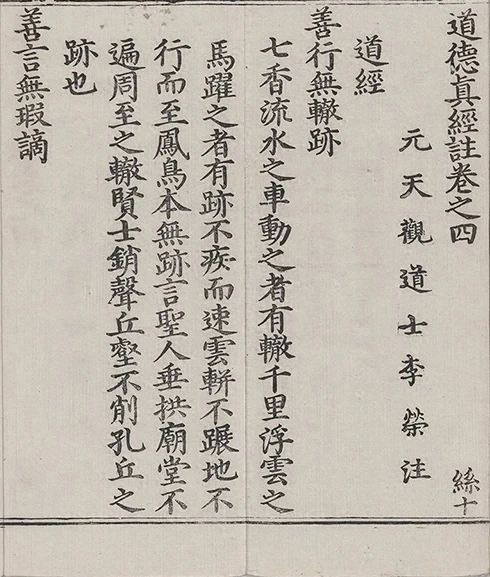 道德真經註卷之四
元天觀道士李榮注
絲十
道經
善行無轍跡
七香流水之車動之者有轍千里浮雲之
馬躍之者有跡不疾而速雲軿不蹍地不
行而至鳳鳥本無跡言聖人垂拱廟堂不
遍周至之轍賢士銷聲丘壑不削孔丘之
跡也
善言無瑕謫